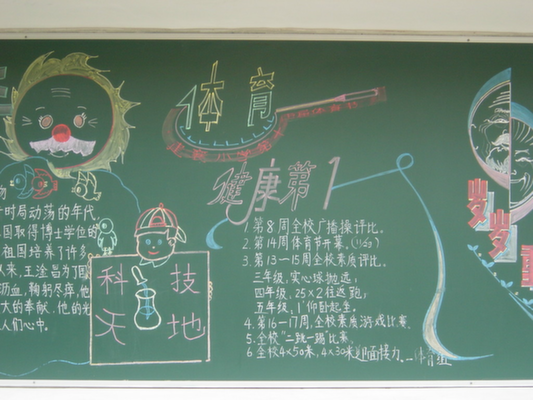 体育
健康第1
1. 第8周全校广播操评比。
2. 第14周体育节开幕。
3. 第13—15周全校素质评比。
三年级，实心球抛远；
四年级，25×2往返跑；
五年级，1'仰卧起坐。
4. 第16—17周，全校素质游戏比赛
5. 全校“二跳一踢”比赛
6 全校4×50米，4×30米迎面接力。
时局动荡的年代
国取得博士学位的
祖国培养了许多
来，王淦昌为了国
沥血，鞠躬尽瘁，他
大的奉献，他的光
人们心中。
科技
天地
岁岁